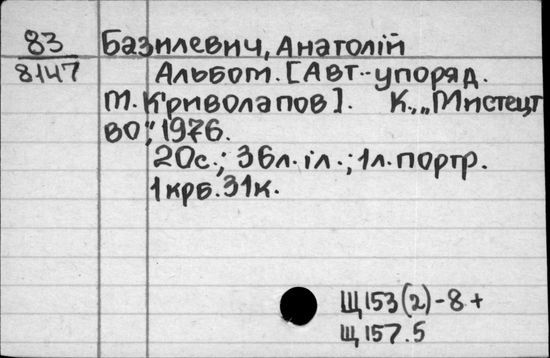 83 Базилевич, Анатолій
8147 Альбом. [Авт.-упоряд.
М. Криволапов]. К., „Мистецт
во", 1976.
20с.; 36л. іл.; 1л. портр.
1крб. 31к.
Щ153(2)-8+
Щ157.5